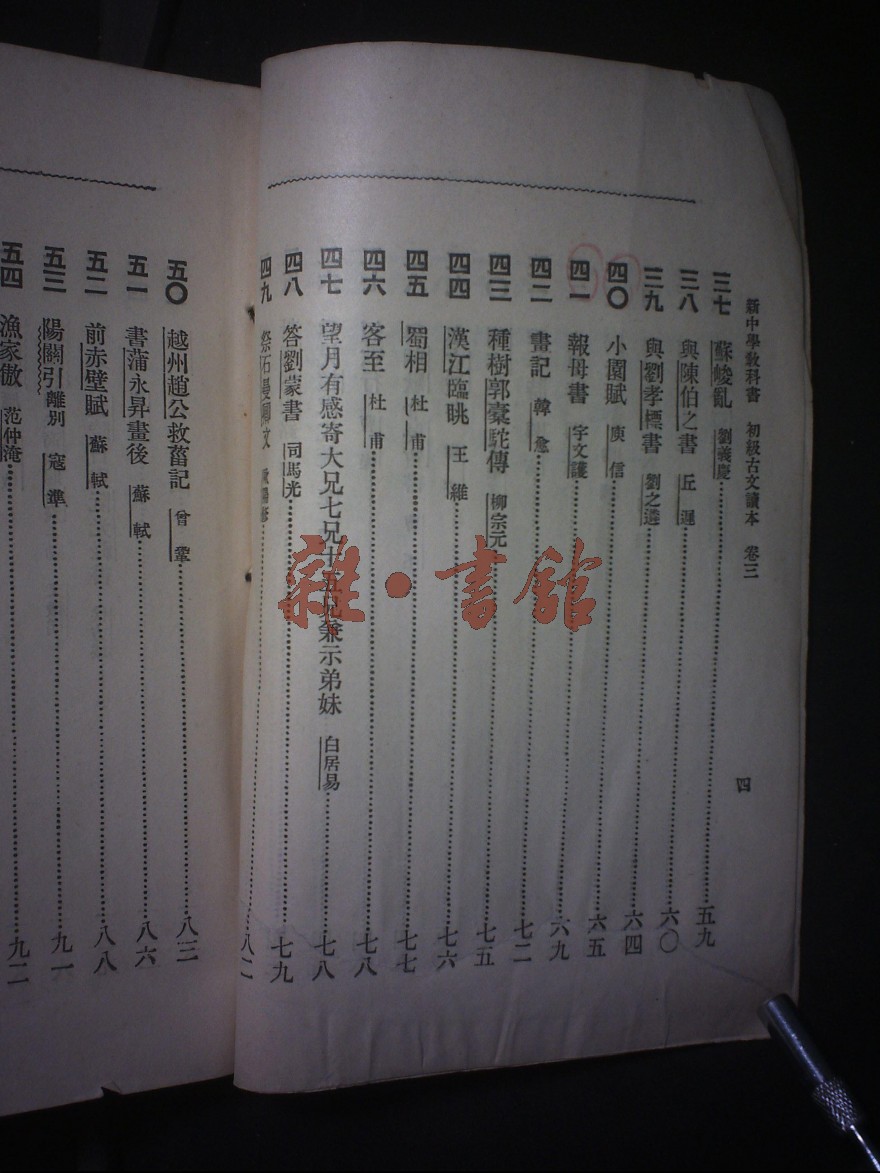 新中學教科書 初級古文讀本 卷三
四
三七 蘇峻亂 劉義慶 五九
三八 與陳伯之書 丘遲 六〇
三九 與劉孝標書 劉之遴 六四
四〇 小園賦 庾信 六五
四一 報母書 宇文護 六九
四二 畫記 韓愈 七二
四三 種樹郭橐駝傳 柳宗元 七五
四四 漢江臨眺 王維 七六
四五 蜀相 杜甫 七七
四六 客至 杜甫 七八
四七 望月有感寄大兄七兄十五兄兼示弟妹 白居易 七八
四八 答劉蒙書 司馬光 七九
四九 祭石曼卿文 歐陽修 八二
五〇 越州趙公救菑記 曾鞏 八三
五一 書蒲永昇畫後 蘇軾 八六
五二 前赤壁賦 蘇軾 八八
五三 陽關引離別 寇準 九一
五四 漁家傲 范仲淹 九二
雜·書館